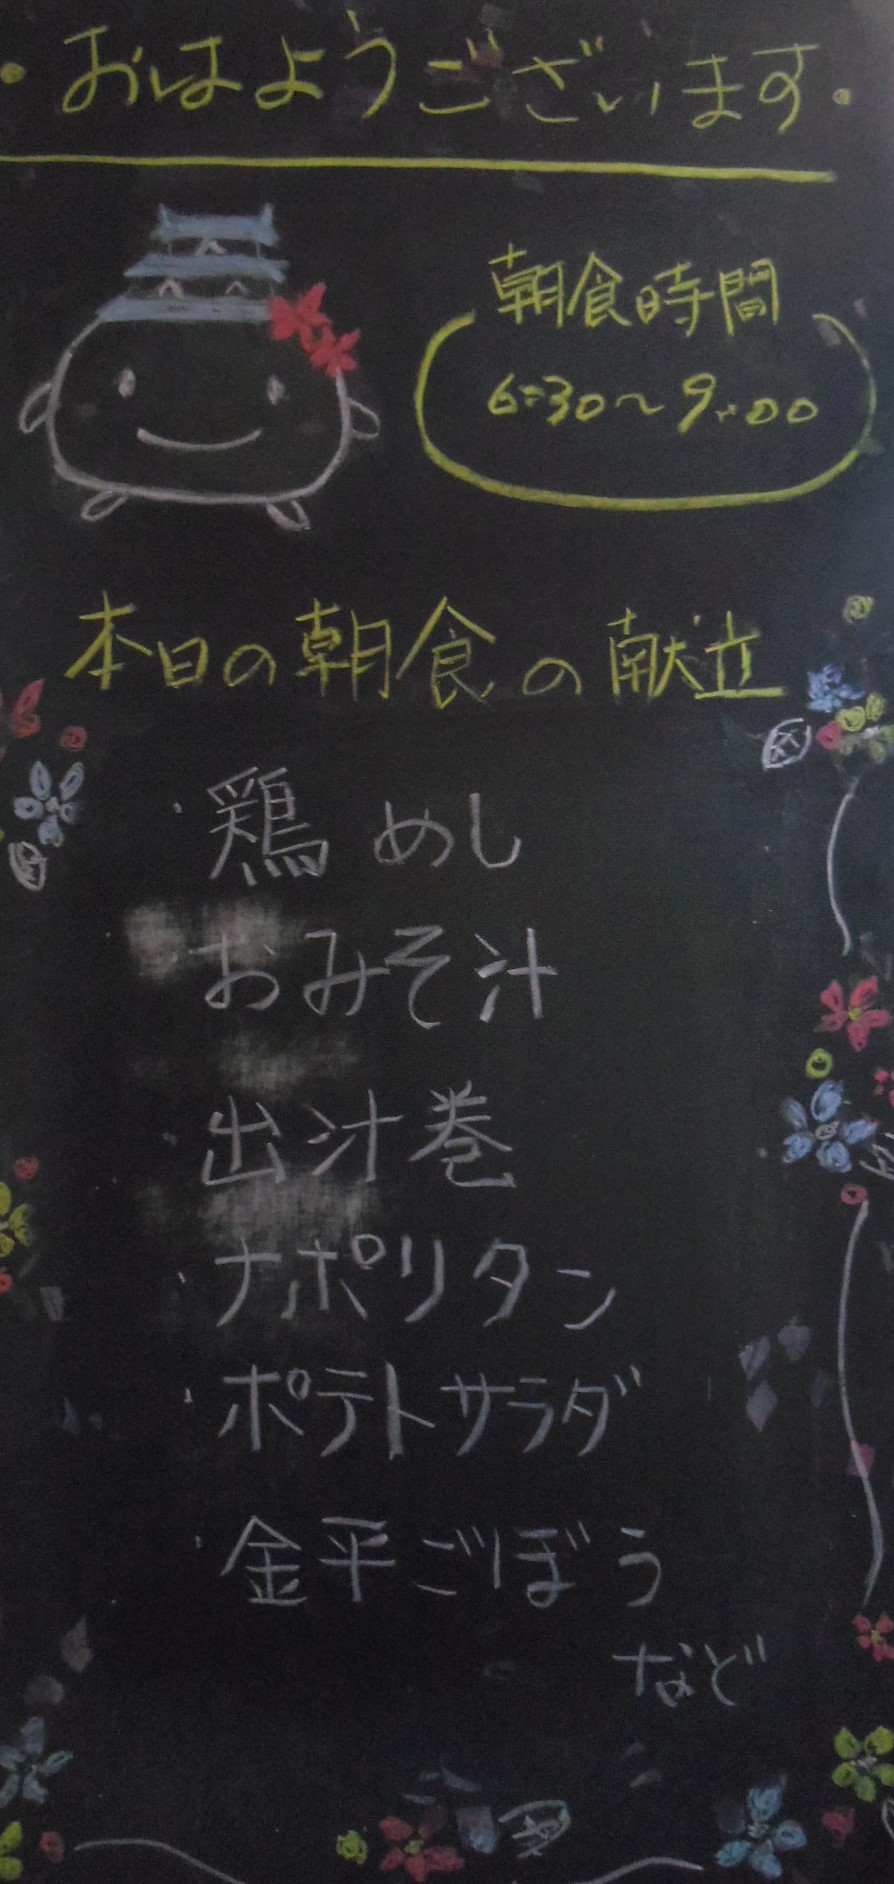 ・おはようございます・
朝食時間
6:30〜9:00
本日の朝食の献立
・鶏めし
・おみそ汁
・出汁巻
・ナポリタン
・ポテトサラダ
・金平ごぼう
など